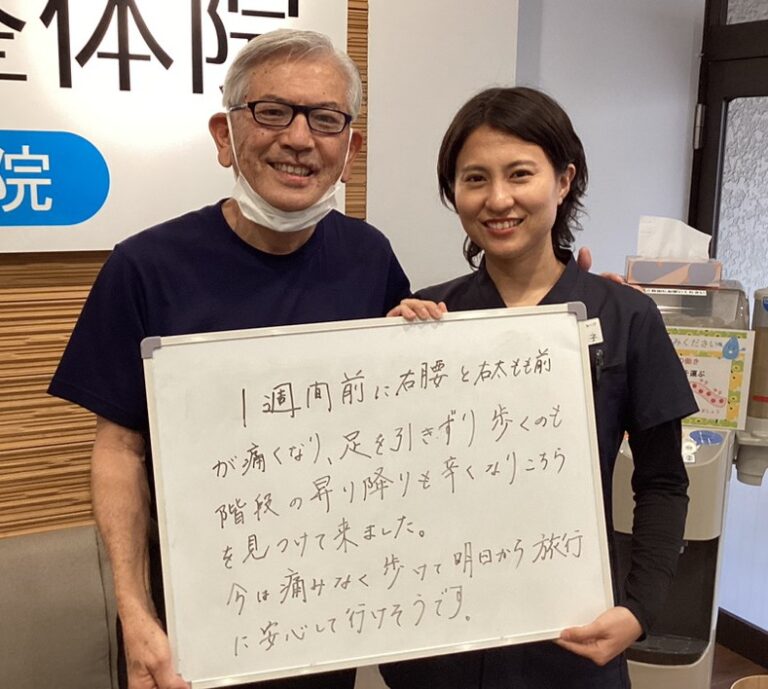 整体院
院
1週間前に右腰と右太もも前
が痛くなり、足を引きずり歩くのも
階段の昇り降りも辛くなりこちら
を見つけて来ました。
今は痛みなく歩けて明日から旅行
に安心して行けそうです。
みください